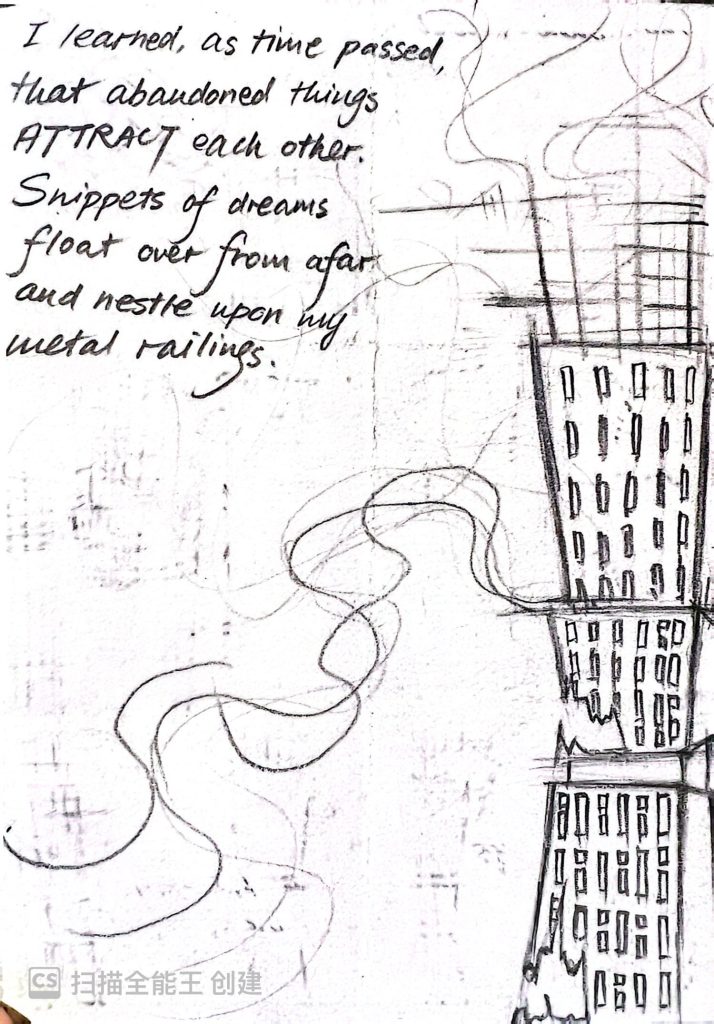 I learned, as time passed,
that abandoned things
ATTRACT each other.
Snippets of dreams
float over from afar
and nestle upon my
metal railings.
CS 扫描全能王 创建